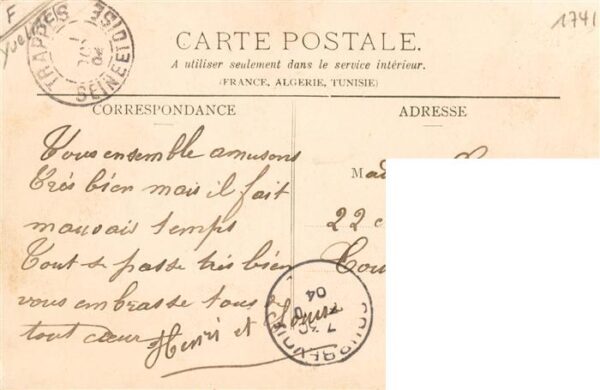 F
Yvelines
TRAPPES
SEINE ET OISE
04
1741
CARTE POSTALE.
A utiliser seulement dans le service intérieur.
(FRANCE, ALGERIE, TUNISIE)
CORRESPONDANCE
ADRESSE
Tous ensemble amusons
très bien mais il fait
mauvais temps
Tout se passe très bien
vous embrasse tous de
tout cœur Henri et Louise
Mad
22
Cou
7
04
COURBEVOIE